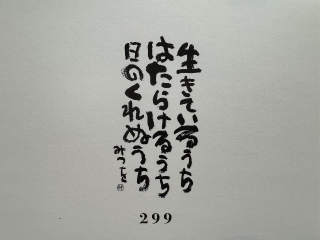 生きているうち
はたらけるうち
日のくれぬうち
みつを
299